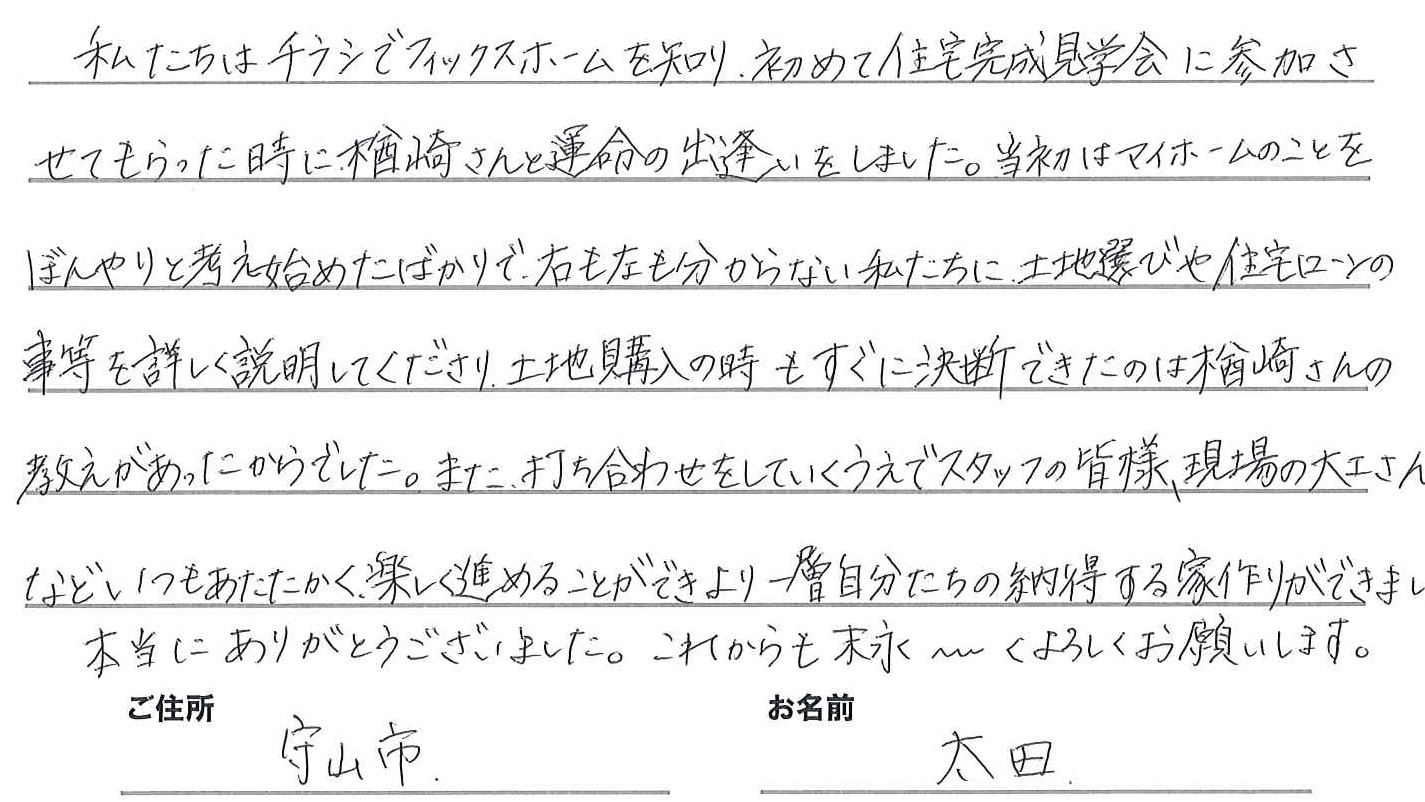 私たちはチラシでフィックスホームを知り、初めて住宅完成見学会に参加さ
せてもらった時に楢崎さんと運命の出逢いをしました。当初はマイホームのことを
ぼんやりと考え始めたばかりで、右も左も分からない私たちに、土地選びや住宅ローンの
事等を詳しく説明してくださり、土地購入の時もすぐに決断できたのは楢崎さんの
教えがあったからでした。また、打ち合わせをしていくうえでスタッフの皆様、現場の大工さん
などいつもあたたかく、楽しく進めることができより一層自分たちの納得する家作りができまし
本当にありがとうございました。これからも末永〜〜くよろしくお願いします。
ご住所 お名前
守山市. 太田.